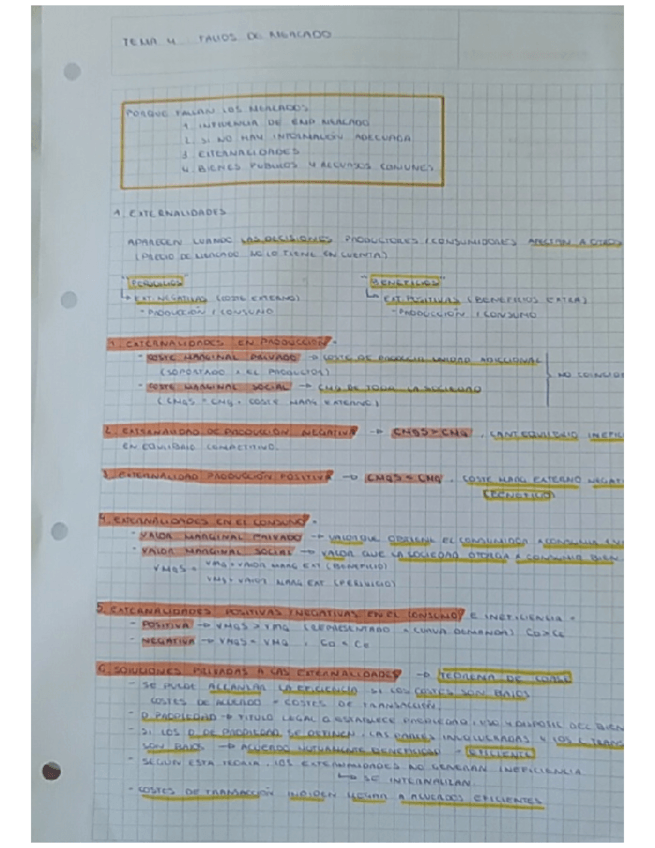 TEMA 4 FALLOS DE MERCADO
PORQUE FALLAN LOS MERCADOS
1. INFLUENCIA DE EMP MERCADO
2. SI NO HAY INFORMACIÓN ADECUADA
3. EXTERNALIDADES
4. BIENES PUBLICOS Y RECURSOS COMUNES
1. EXTERNALIDADES
APARECEN CUANDO LAS DECISIONES PRODUCTORES / CONSUMIDORES AFECTAN A OTROS
(PRECIO DE MERCADO NO LO TIENE EN CUENTA)
"PERJUICIOS" "BENEFICIOS"
↳ EXT. NEGATIVAS (COSTE EXTERNO) ↳ EXT. POSITIVAS (BENEFICIOS EXTRA)
- PRODUCCIÓN / CONSUMO - PRODUCCIÓN / CONSUMO
1. EXTERNALIDADES EN PRODUCCIÓN -
- COSTE MARGINAL PRIVADO → COSTE DE PRODUCIR UNIDAD ADICIONAL
(SOPORTADO X EL PRODUCTOR) NO COINCIDE
- COSTE MARGINAL SOCIAL → CMG DE TODA LA SOCIEDAD
(CMGS = CMG + COSTE MARG EXTERNO)
2. EXTERNALIDAD DE PRODUCCIÓN NEGATIVA → CMGS > CMG , CANT EQUILIBRIO INEFIC
EN EQUILIBRIO COMPETITIVO.
3. EXTERNALIDAD PRODUCCIÓN POSITIVA → CMGS < CMG , COSTE MARG EXTERNO NEGAT
(BENEFICIO)
4. EXTERNALIDADES EN EL CONSUMO -
- VALOR MARGINAL PRIVADO → VALOR QUE OBTIENE EL CONSUMIDOR A CONSUMIR
- VALOR MARGINAL SOCIAL → VALOR QUE LA SOCIEDAD OTORGA A CONSUMIR BIEN
VMGS = VMG + VALOR MARG EXT (BENEFICIO)
VMG - VALOR MARG EXT (PERJUICIO)
5. EXTERNALIDADES POSITIVAS / NEGATIVAS EN EL CONSUMO E INEFICIENCIA -
- POSITIVA → VMGS > VMG (REPRESENTADO X CURVA DEMANDA)
- NEGATIVA → VMGS < VMG ,
6. SOLUCIONES PRIVADAS A LAS EXTERNALIDADES → TEOREMA DE COASE
- SE PUEDE ALCANZAR LA EFICIENCIA SI LOS COSTES SON BAJOS
COSTES DE ACUERDO = COSTES DE TRANSACCIÓN.
- D. PROPIEDAD → TITULO LEGAL Q ESTABLECE PROPIEDAD, USO Y DISPOSIC DEL BIEN
- SI LOS D. DE PROPIEDAD SE DEFINEN, LAS PARTES INVOLUCRADAS Y LOS C TRANS
SON BAJOS → ACUERDO MUTUAMENTE BENEFICIOSO = EFICIENTE
- SEGÚN ESTA TEORIA, LOS EXTERNALIDADES NO GENERAN INEFICIENCIA
↳ SE INTERNALIZAN.
- COSTES DE TRANSACCIÓN IMPIDEN LLEGAR A ACUERDOS EFICIENTES